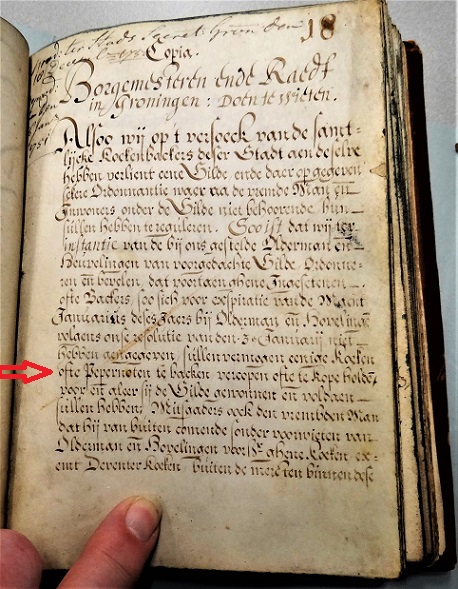 ter Stads Secret. Gron. den
18
Copia.
Borgemesteren ende Raedt
in Groningen: Doen te Wieten.
Alsoo wij op t versoeck van de samt-
lijcke Koekenbackers deser Stadt aen deselve
hebben verlient eene Gilde, ende daer op gegeven
sekere Ordonnantie waer na de vremde Man en
Inwoners onder de Gilde niet behoorende hun
sullen hebben te reguleren. Soo ist dat wij ter
instantie van de bij ons gestelde Olderman en
Heuvelingen van voorgedachte Gilde, Ordonne-
ren en bevelen, dat voortaen ghene Ingesetenen
ofte Backers, soo sich voor expiratie van de Maent
Januarius deses Jaers bij Olderman en Hovelingē
volgens onse resolutie van den 3. Januarij niet
hebben aengegeven, sullen vermogen eenige Koeken
ofte Pepernoten te backen, vercopen ofte te Kope holdē,
voor en aleer sij de Gilde gewonnen en voldaen
sullen hebben; Mitsgaders oock den vrembden Man
dat hij van buiten comende sonder voorwieten van
Olderman en Hovelingen voors. ghene Koeken ex-
emt Deventer Koeken buiten de mercten binnen dese